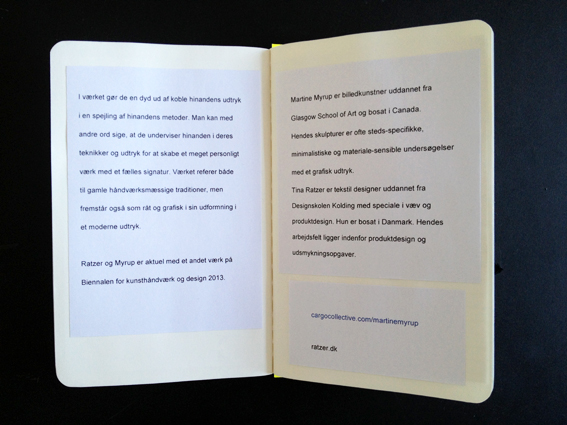 I værket gør de en dyd ud af koble hinandens udtryk
i en spejling af hinandens metoder. Man kan med
andre ord sige, at de underviser hinanden i deres
teknikker og udtryk for at skabe et meget personligt
værk med et fælles signatur. Værket referer både
til gamle håndværksmæssige traditioner, men
fremstår også som råt og grafisk i sin udformning i
et moderne udtryk.
Ratzer og Myrup er aktuel med et andet værk på
Biennalen for kunsthåndværk og design 2013.
Martine Myrup er billedkunstner uddannet fra
Glasgow School of Art og bosat i Canada.
Hendes skulpturer er ofte steds-specifikke,
minimalistiske og materiale-sensible undersøgelser
med et grafisk udtryk.
Tina Ratzer er tekstil designer uddannet fra
Designskolen Kolding med speciale i væv og
produktdesign. Hun er bosat i Danmark. Hendes
arbejdsfelt ligger indenfor produktdesign og
udsmykningsopgaver.
cargocollective.com/martinemyrup
ratzer.dk